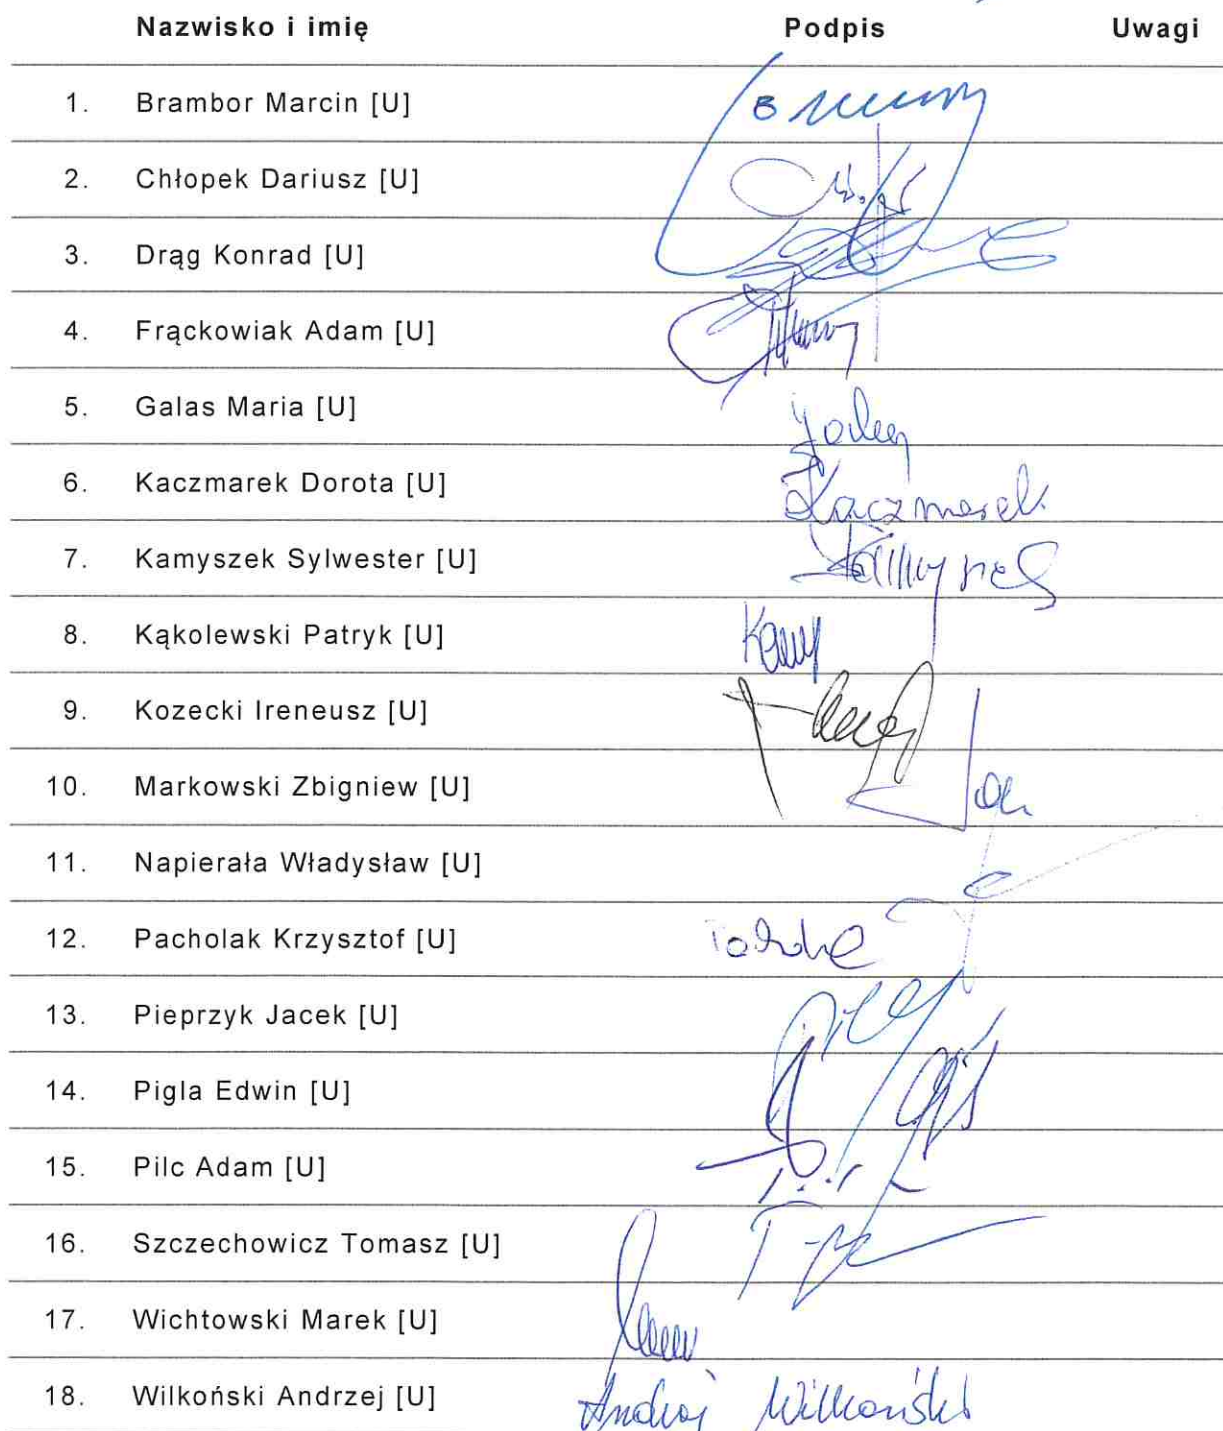 Nazwisko i imię Podpis Uwagi
1. Brambor Marcin [U]
2. Chłopek Dariusz [U]
3. Drąg Konrad [U]
4. Frąckowiak Adam [U]
5. Galas Maria [U]
6. Kaczmarek Dorota [U] Kaczmarek
7. Kamyszek Sylwester [U]
8. Kąkolewski Patryk [U]
9. Kozecki Ireneusz [U]
10. Markowski Zbigniew [U]
11. Napierała Władysław [U]
12. Pacholak Krzysztof [U]
13. Pieprzyk Jacek [U]
14. Pigla Edwin [U]
15. Pilc Adam [U]
16. Szczechowicz Tomasz [U]
17. Wichtowski Marek [U]
18. Wilkoński Andrzej [U] Andrzej Wilkoński